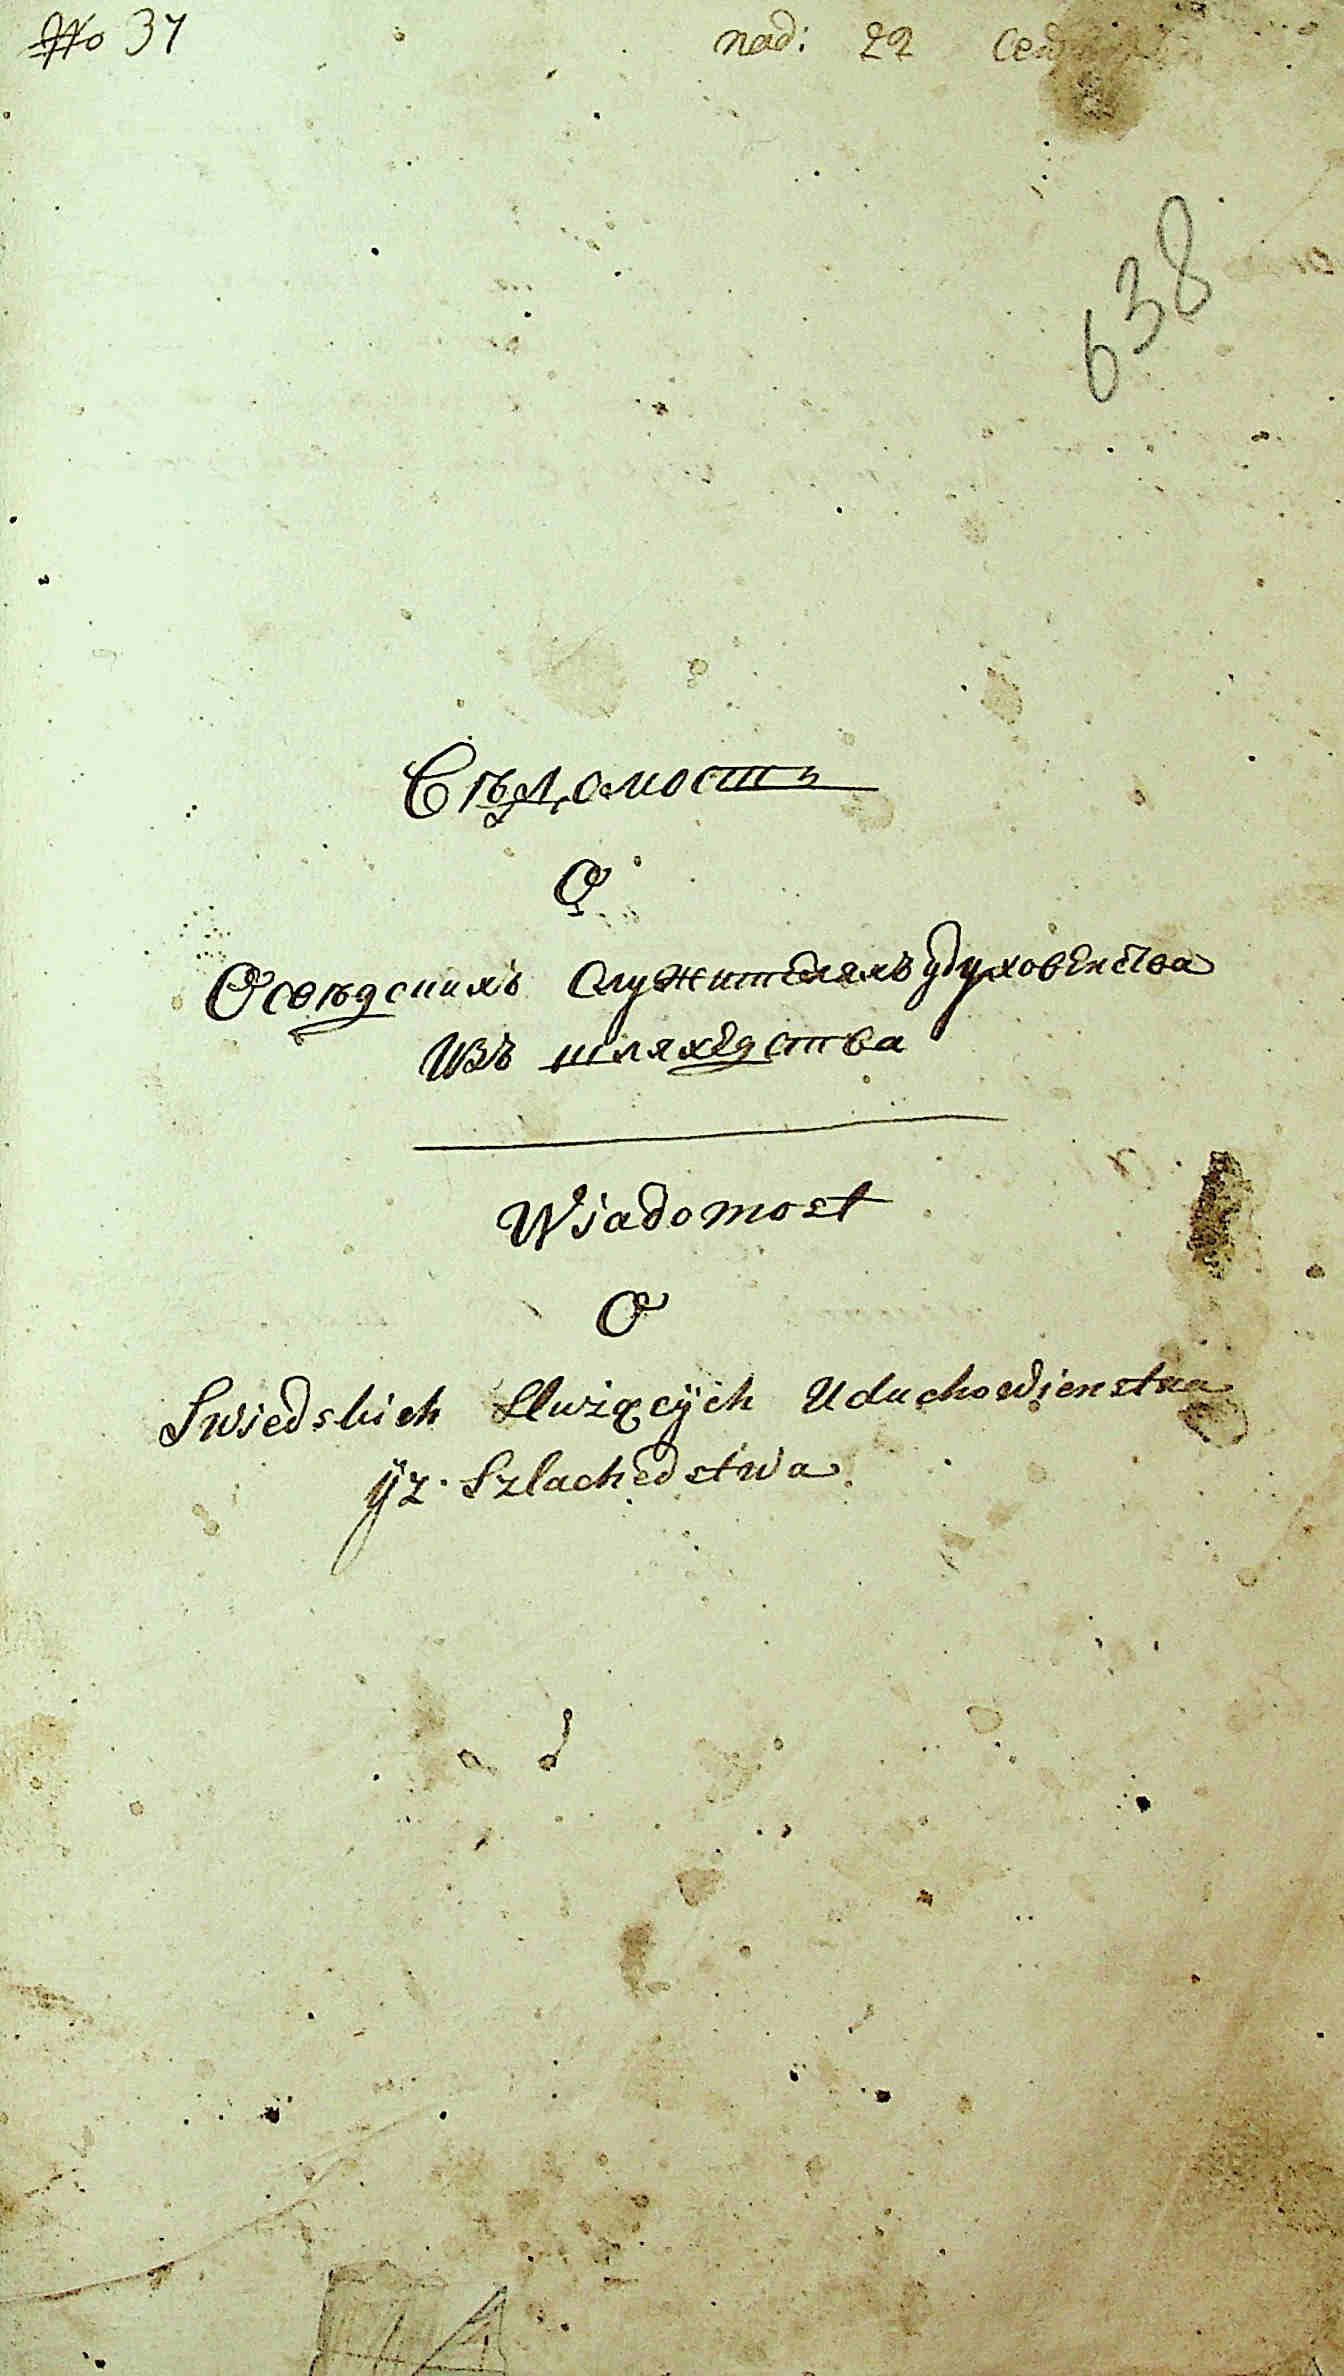 No 37 nad: 22
638
Вѣдомость
О
Освѣдскихъ Служителяхъ удуховенства
Изъ шляхедства
Wiadomost
O
Swiedskich Służących Uduchowienstwa
ÿz Szlachedstwa